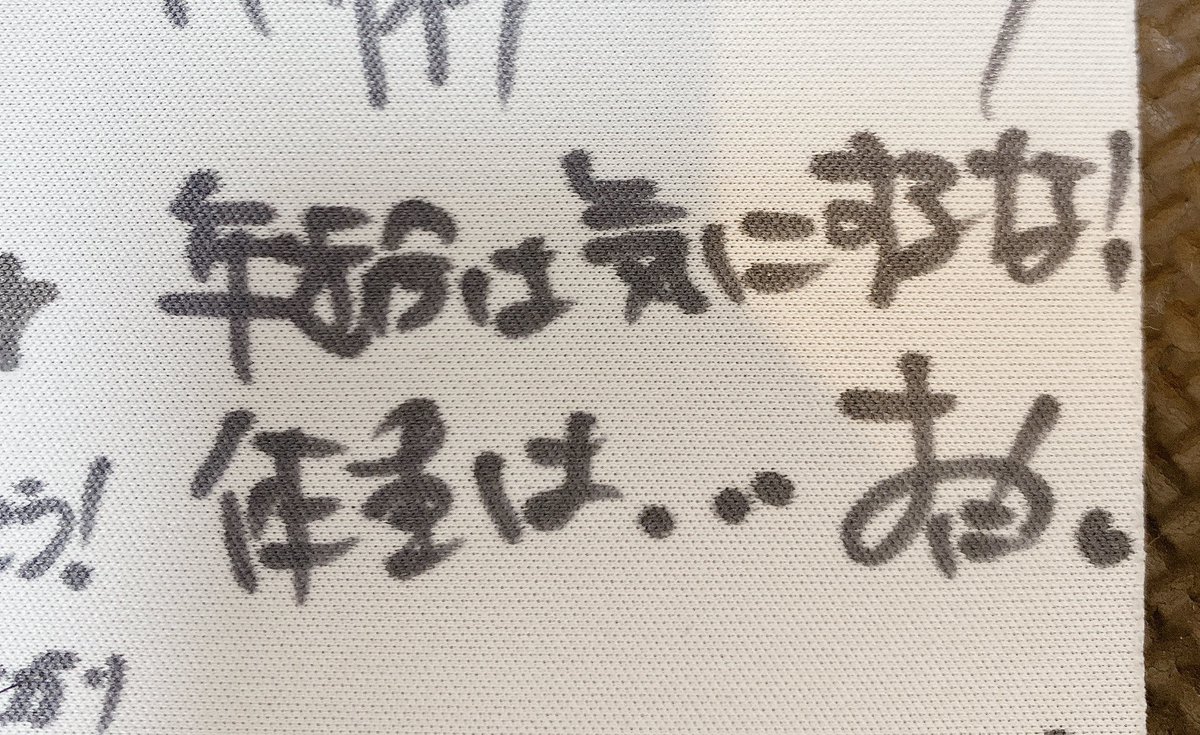 年齢は気にするな!
体重は...
う!